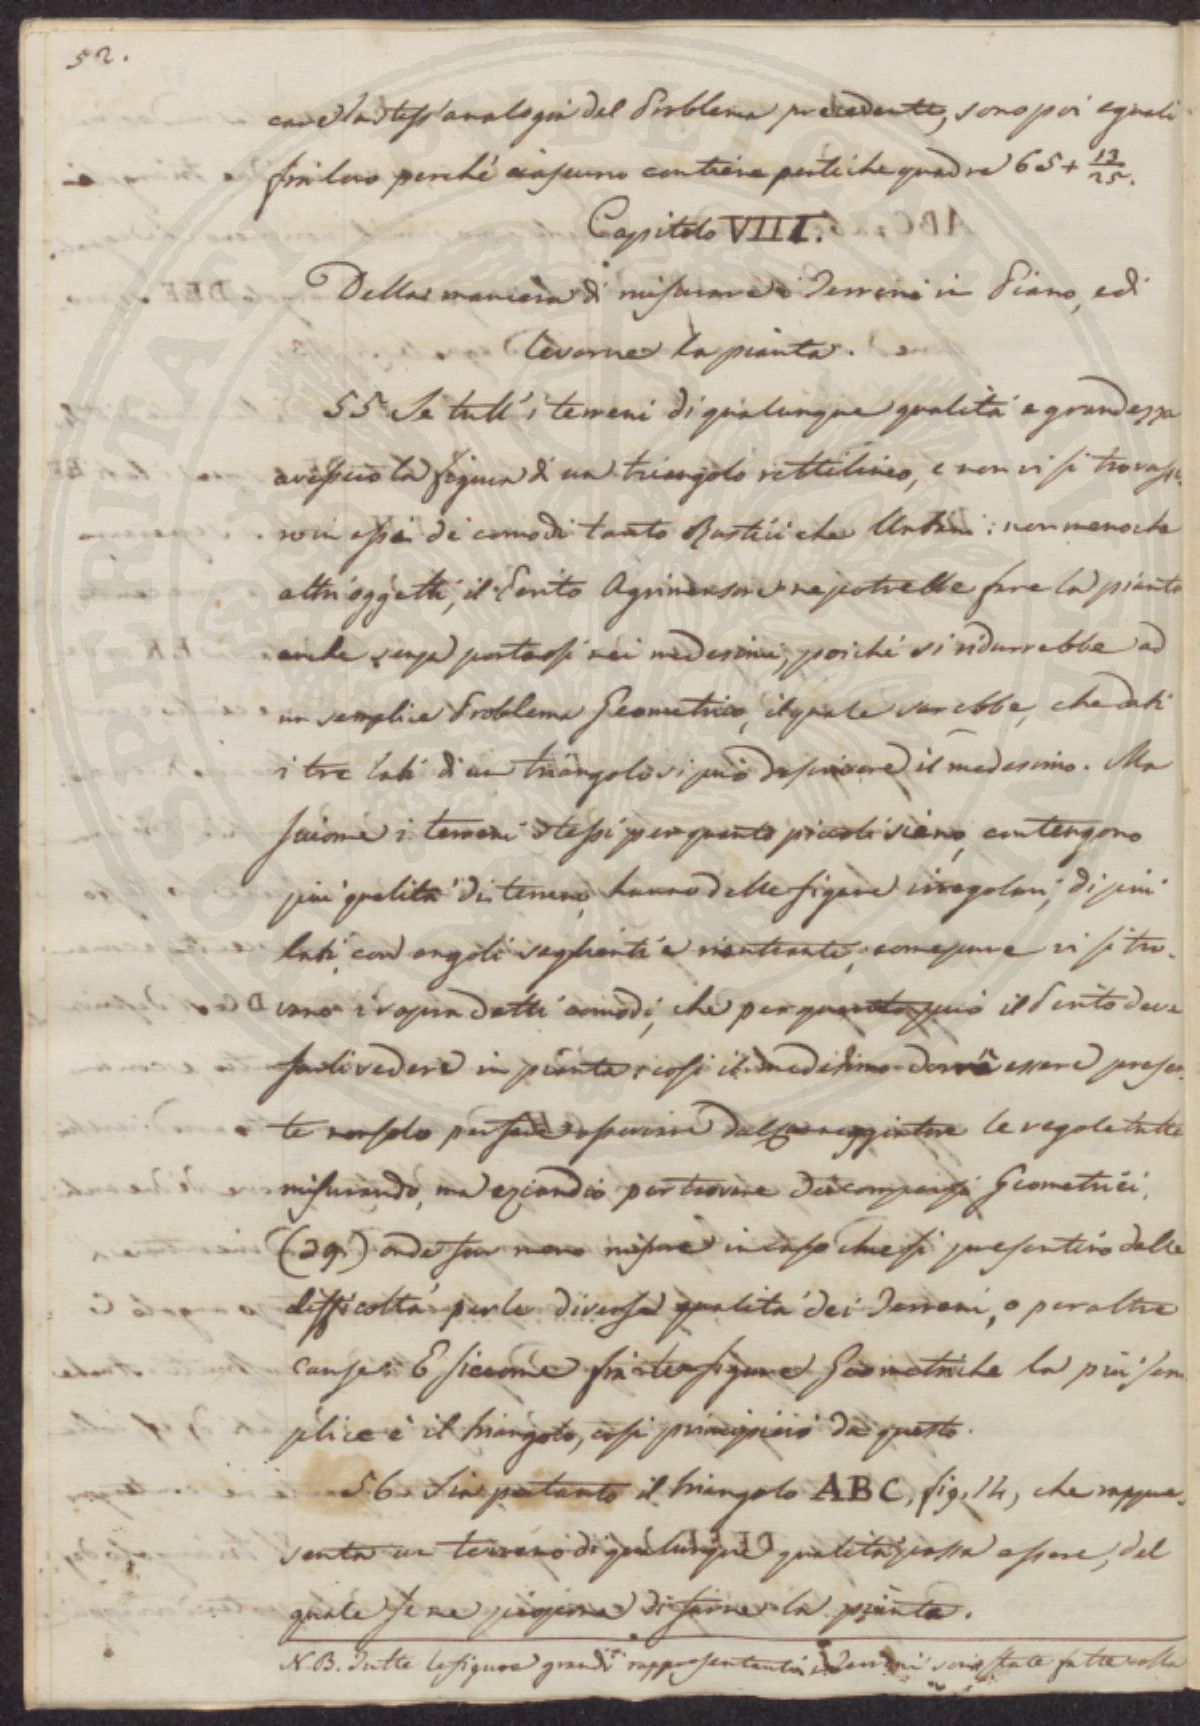 52.
care la stess'analogia del Problema precedente, sono poi eguali
fra loro perché ciascuno contiene pertiche quadre 65 + 13/25.
Capitolo VIII.
Della maniera di misurare i Terreni in Piano, e di
levarne la pianta.
55 Se tutt'i terreni di qualunque qualità e grandezza
avessero la figura di un triangolo rettilineo, e non vi si trovasse-
ro in essi de' comodi tanto Rustici che Urbani: non meno che
altri oggetti, il Perito Agrimensore ne potrebbe fare la pianta
anche senza portarsi nei medesimi, poiché si ridurrebbe ad
un semplice Problema Geometrico, il quale sarebbe, che dati
i tre lati di un triangolo si può descrivere il medesimo. Ma
siccome i terreni stessi per quanto piccoli siano, contengono
più qualità di terreno, hanno delle figure irregolari, di più
lati, con angoli saglienti e rientranti, come pure vi si tro-
vano i sopra detti comodi, che per quanto può il Perito deve
farli vedere in pianta: così il medesimo dovrà essere presen-
te non solo per fare osservare dal le regole tutte
misurando, ma eziandio per trovare dei compensi Geometrici,
(29.) onde far meno misure in caso che si presentino delle
difficoltà per la diversa qualità dei Terreni, o per altre
cause. E siccome fra le figure Geometriche la più sem
plice è il triangolo, così principierò da questo.
56. Sia pertanto il triangolo ABC, fig. 14, che rappre-
senta un terreno di qualunque qualità possa essere, del
quale se ne di farne la pianta.
N.B. Tutte le figure grandi rappresentanti i Terreni sono state fatte colla